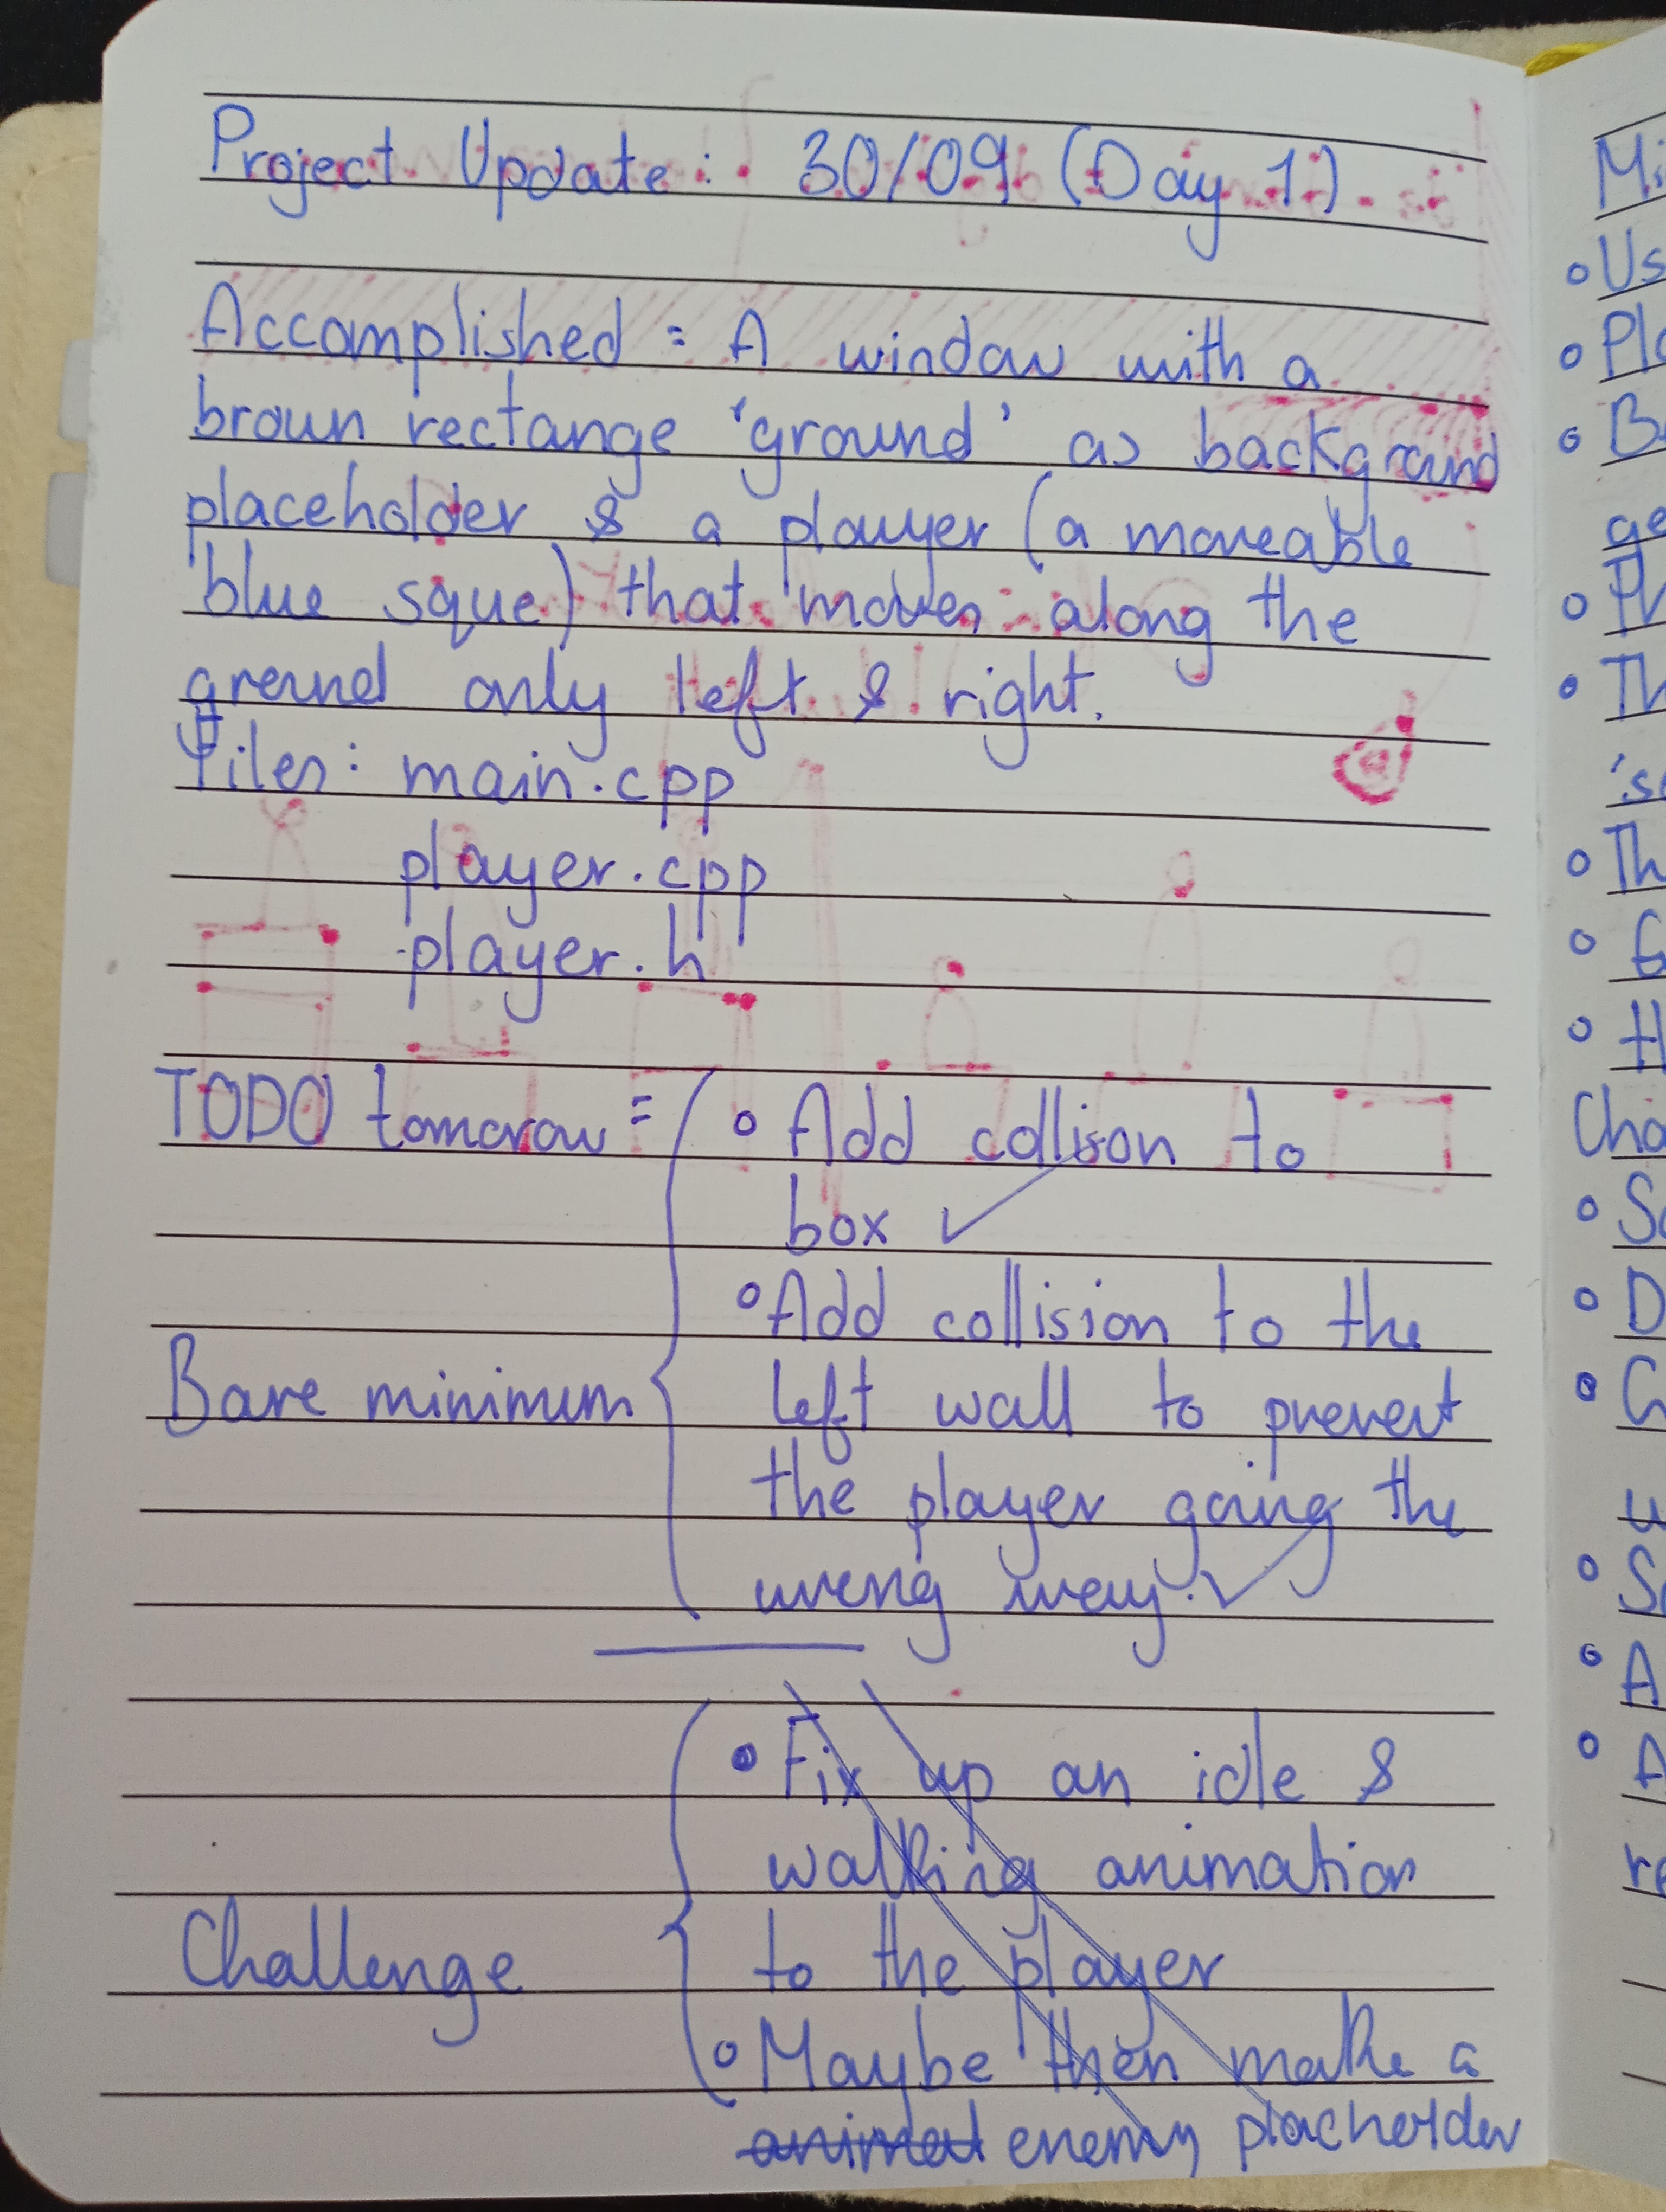 Project Update: 30/09 (Day 1)
Accomplished = A window with a
brown rectange 'ground' as background
placeholder & a player (a moveable
blue sque) that moves along the
ground only left & right.
Files: main.cpp
player.cpp
player.h
TODO tomorow =
• Add collison to
box ✓
• Add collision to the
Bare minimum
left wall to prevent
the player going the
wrong way. ✓
• Fix up an idle &
walking animation
Challenge
to the player
• Maybe then make a
animated enemy placholder
Mi
• Us
• Pla
• B
ge
• Th
's
• Th
• H
Cha
• S
• D
• S
• A
• A
re